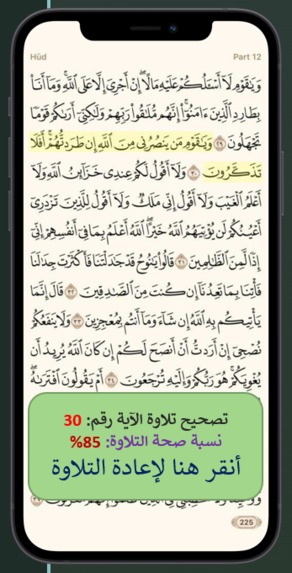 Hūd
Part 12
وَيَٰقَوْمِ لَآ أَسْـَٔلُكُمْ عَلَيْهِ مَالًا ۖ إِنْ أَجْرِىَ إِلَّا عَلَى ٱللَّهِ ۚ وَمَآ أَنَا۠
بِطَارِدِ ٱلَّذِينَ ءَامَنُوٓا۟ ۚ إِنَّهُم مُّلَٰقُوا۟ رَبِّهِمْ وَلَٰكِنِّىٓ أَرَىٰكُمْ قَوْمًا
تَجْهَلُونَ ٢٩ وَيَٰقَوْمِ مَن يَنصُرُنِى مِنَ ٱللَّهِ إِن طَرَدتُّهُمْ ۚ أَفَلَا
تَذَكَّرُونَ ٣٠ وَلَآ أَقُولُ لَكُمْ عِندِى خَزَآئِنُ ٱللَّهِ وَلَآ
أَعْلَمُ ٱلْغَيْبَ وَلَآ أَقُولُ إِنِّى مَلَكٌ وَلَآ أَقُولُ لِلَّذِينَ تَزْدَرِىٓ
أَعْيُنُكُمْ لَن يُؤْتِيَهُمُ ٱللَّهُ خَيْرًا ۖ ٱللَّهُ أَعْلَمُ بِمَا فِىٓ أَنفُسِهِمْ ۖ إِنِّىٓ
إِذًا لَّمِنَ ٱلظَّٰلِمِينَ ٣١ قَالُوا۟ يَٰنُوحُ قَدْ جَٰدَلْتَنَا فَأَكْثَرْتَ جِدَٰلَنَا
فَأْتِنَا بِمَا تَعِدُنَآ إِن كُنتَ مِنَ ٱلصَّٰدِقِينَ ٣٢ قَالَ إِنَّمَا
يَأْتِيكُم بِهِ ٱللَّهُ إِن شَآءَ وَمَآ أَنتُم بِمُعْجِزِينَ ٣٣ وَلَا يَنفَعُكُمْ
نُصْحِىٓ إِنْ أَرَدتُّ أَنْ أَنصَحَ لَكُمْ إِن كَانَ ٱللَّهُ يُرِيدُ أَن
يُغْوِيَكُمْ ۚ هُوَ رَبُّكُمْ وَإِلَيْهِ تُرْجَعُونَ ٣٤ أَمْ يَقُولُونَ ٱفْتَرَىٰهُ ۖ
تصحيح تلاوة الآية رقم: 30
نسبة صحة التلاوة: 85%
أنقر هنا لإعادة التلاوة
225